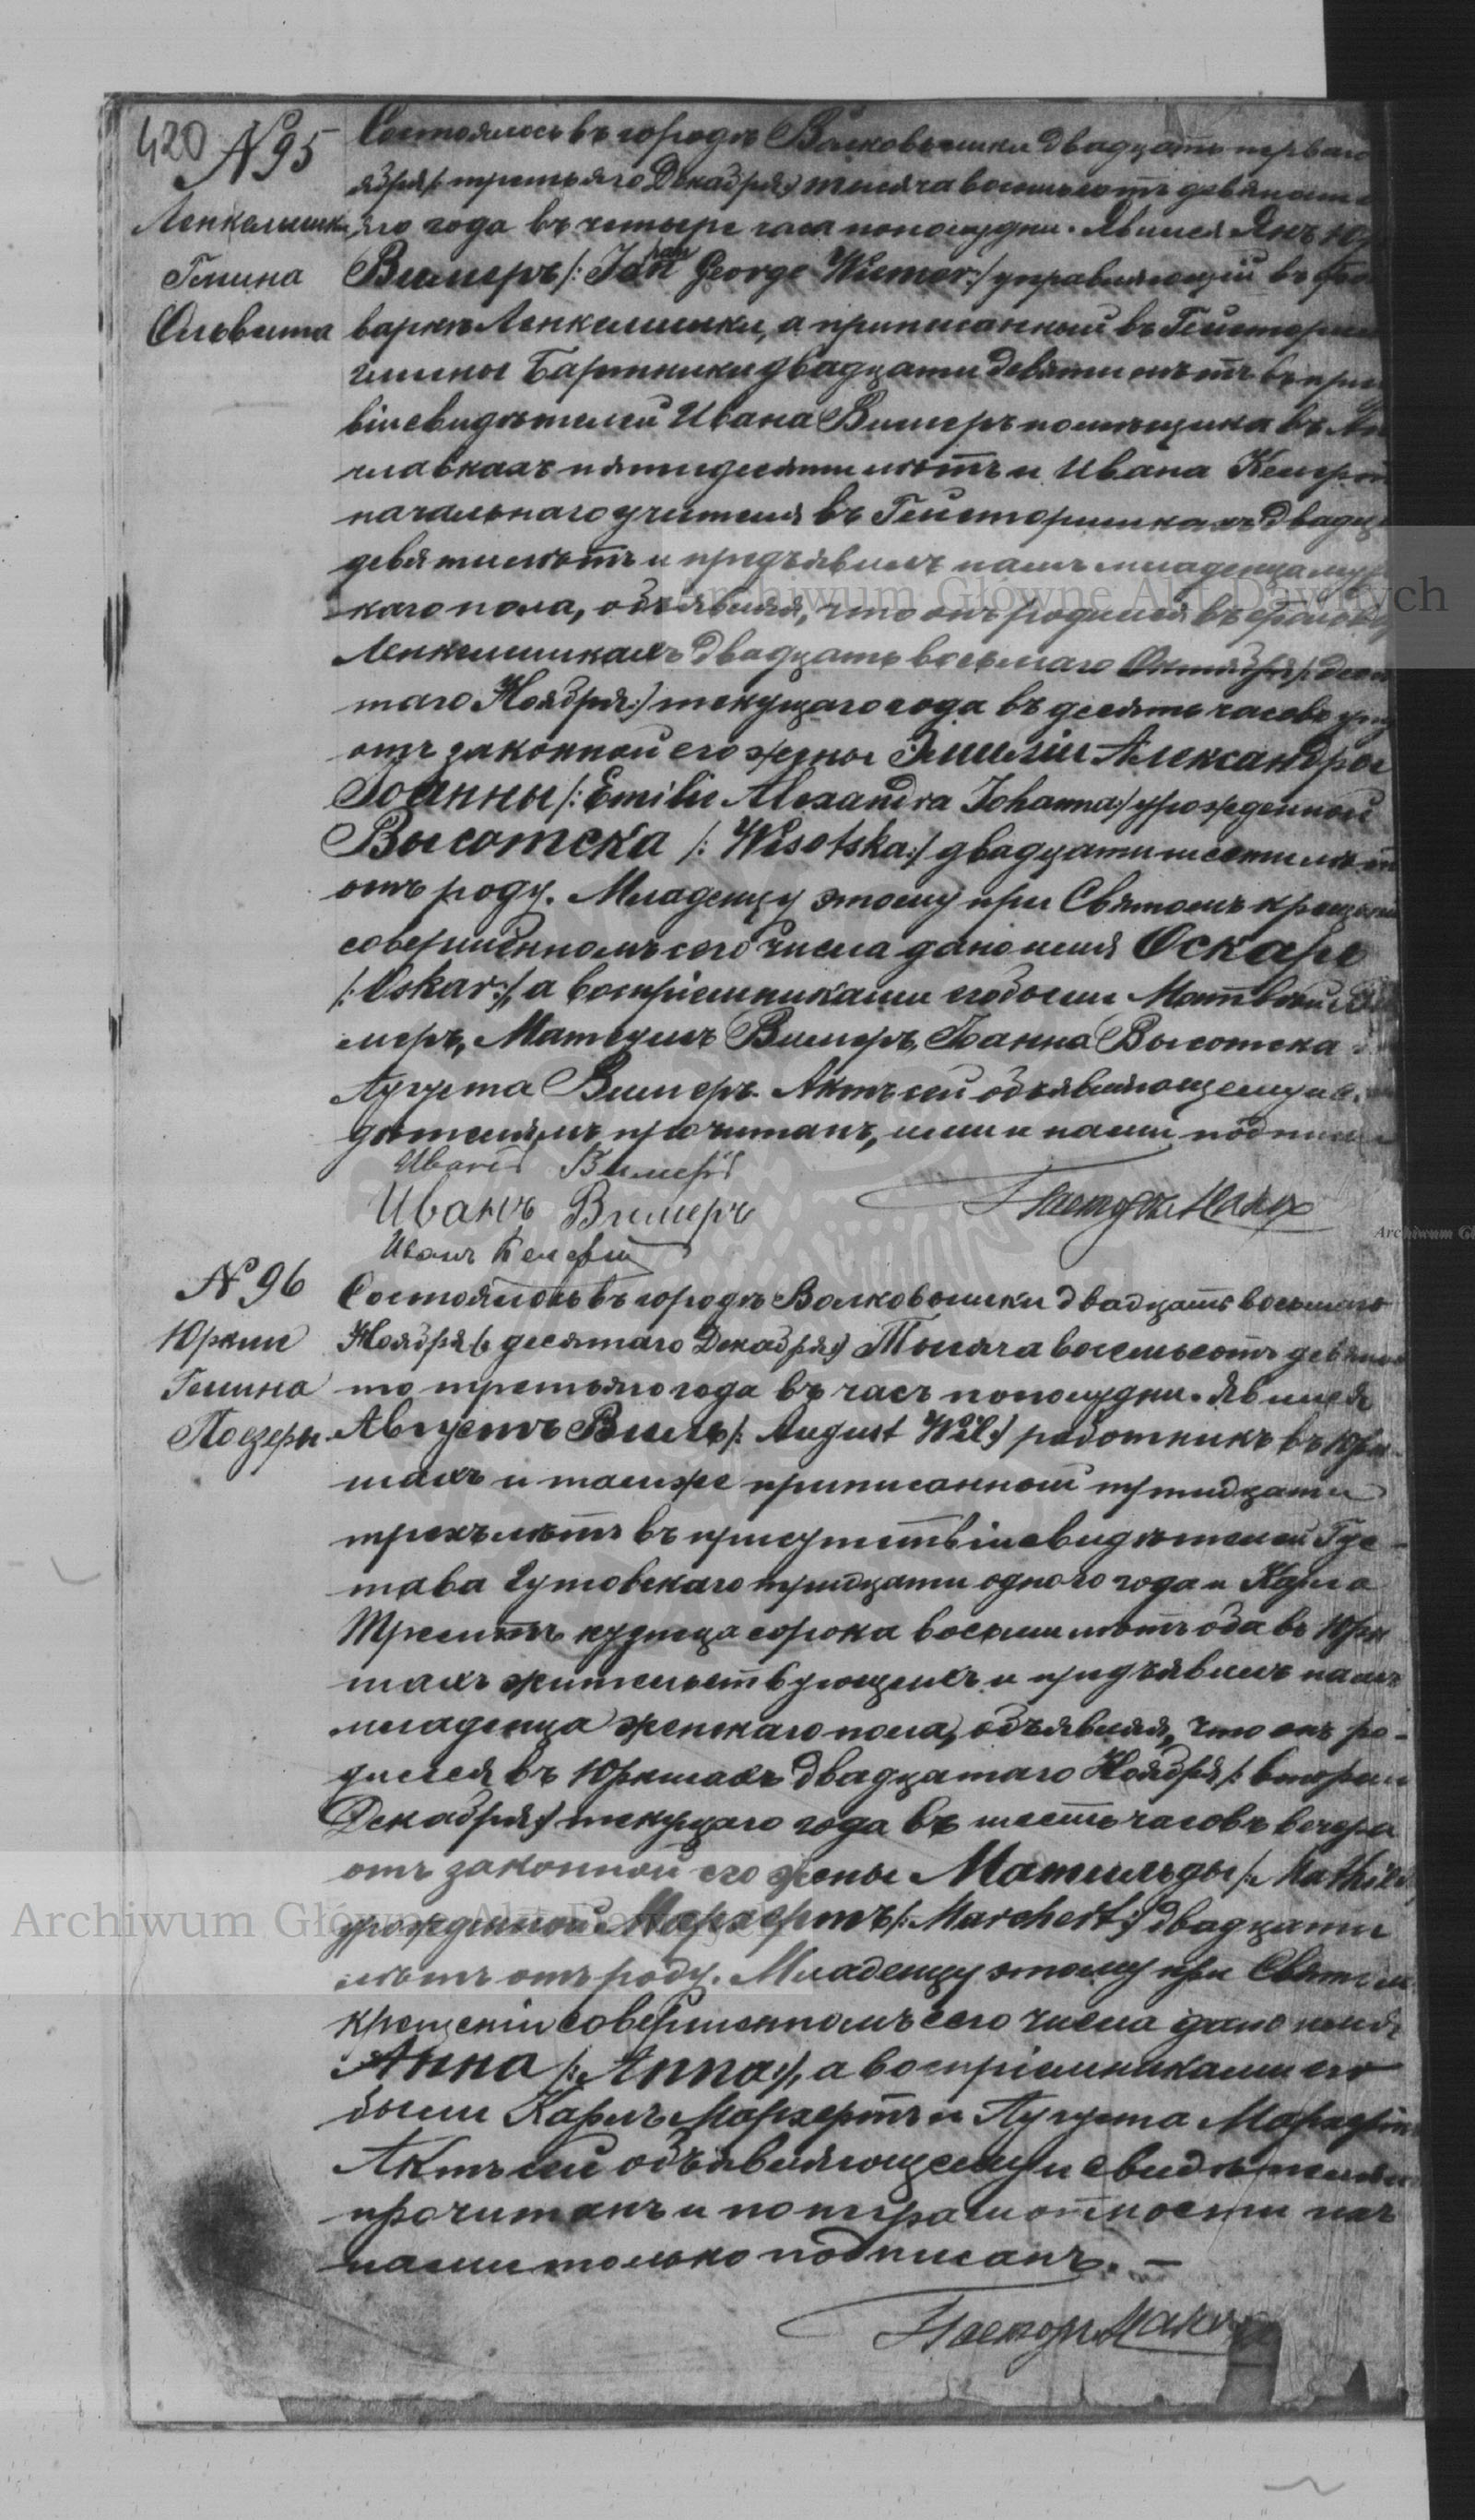 420 № 95
Состоялось въ городѣ Волковышки двадцать перваго
ября /: третьяго Декабря :/ тысяча восемьсотъ девяносто
Ленкелишки яго года въ четыре часа пополудни. Явился Янъ
Гмина Вимеръ /: Jan George Wiemer :/ управляющій въ фоль
Ольвита варкѣ Ленкелишки, а приписанный въ
гмины Бартники двадцати девяти лѣтъ въ прису
віи свидѣтелей Ивана Вимеръ помѣщика въ
пятидесяти лѣтъ и Ивана
начальнаго учителя въ Гейсторишкахъ двадца
девяти лѣтъ и предъявилъ намъ младенца муж
каго пола, объявляя, что онъ родился въ фольв
Ленкелишкахъ двадцать восьмаго Октября /: девя
таго Ноября :/ текущаго года въ десять часовъ утра
отъ законной его жены Эмиліи Александры
Іоанны /: Emilie Alexandra Johanna :/ урожденной
Высотска /: Wisotska :/ двадцати шести лѣтъ
отъ роду. Младенцу этому при Святомъ крещеніи
совершенномъ сего числа дано имя Оскаръ
/: Oskar :/, а воспріемниками его были Матвѣй Ви
меръ, Матеушъ Вимеръ, Іоанна Высотска
Аугуста Вимеръ. Актъ сей объявляющему и сви
дѣтелямъ прочитанъ, ими и нами подписанъ
Иванъ Вимеръ
Иванъ Вимеръ
Иванъ
Пасторъ
№ 96
Состоялось въ городѣ Волковышки двадцать восьмаго
Юркши Ноября /: десятаго Декабря :/ Тысяча восемьсотъ девянос
Гмина то третьяго года въ часъ пополудни. Явился
Поезеры Августъ Виль /: August Wil :/ работникъ въ Юрк
шахъ и тамже приписанный тридцати
трехъ лѣтъ въ присутствіи свидѣтелей Гус-
тава Гутовскаго тридцати одного года и Карла
кузнеца сорока восьми лѣтъ оба въ Юрк
шахъ жительствующихъ и предъявилъ намъ
младенца женскаго пола, объявляя, что онъ ро-
дился въ Юркшахъ двадцатаго Ноября /: втораго
Декабря :/ текущаго года въ шесть часовъ вечера
отъ законной его жены Матильды /: Mathild
урожденной Мархертъ /: Marchert :/ двадцати
лѣтъ отъ роду. Младенцу этому при Святомъ
крещеніи совершенномъ сего числа дано имя
Анна /: Anna :/, а воспріемниками его
были Карлъ Мархертъ и Аугуста Мархертъ
Актъ сей объявляющему и свидѣтелямъ
прочитанъ и по неграмотности ихъ
нами только подписанъ. —
Пасторъ
Archiwum Główne Akt Dawnych
Archiwum Główne Akt Dawnych
Archiwum Gł